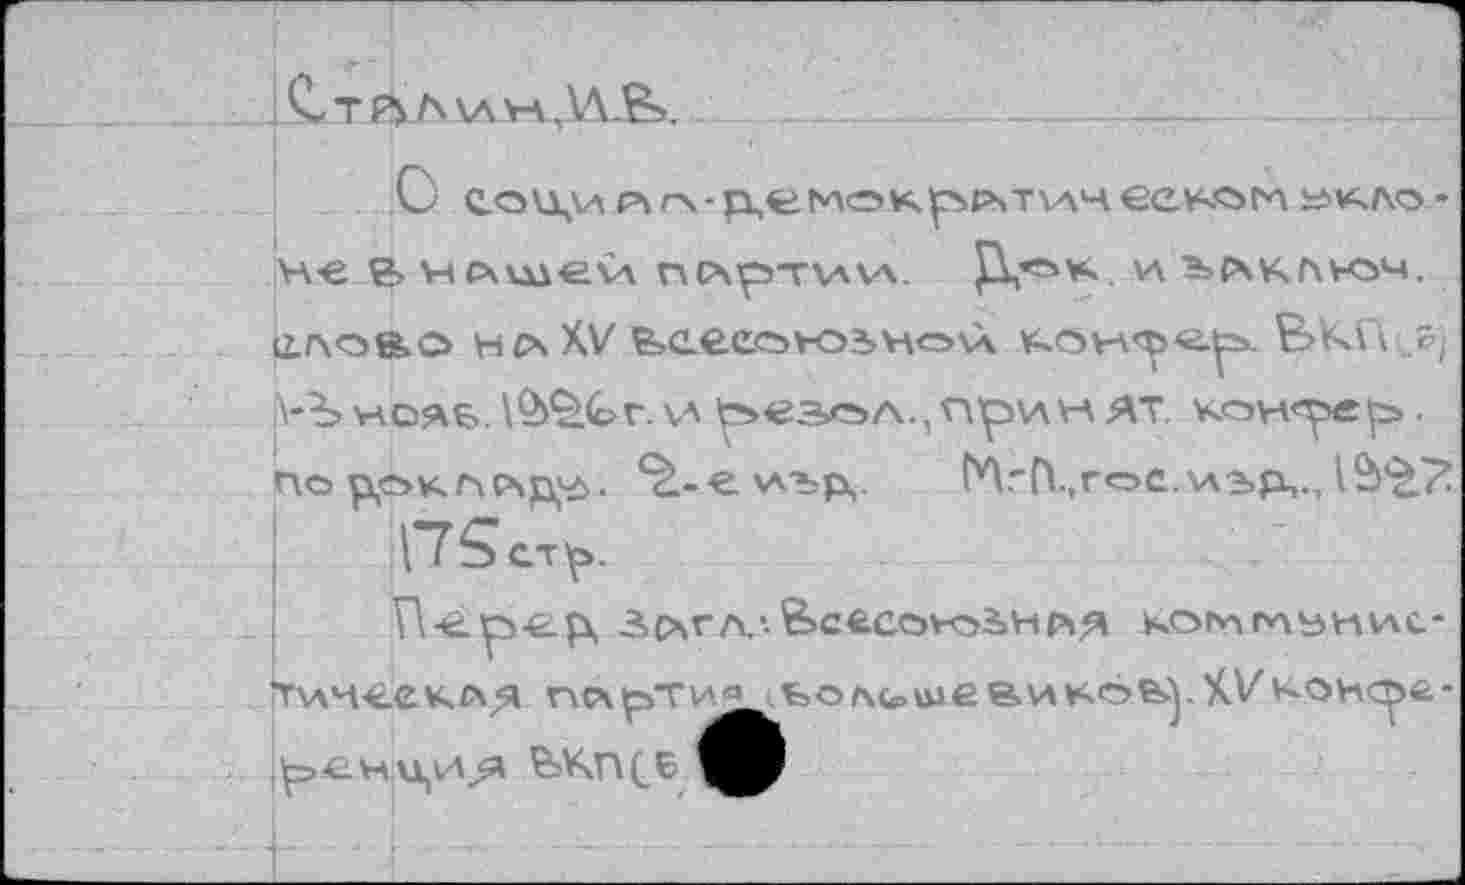 Сталин, И.В.
О социал-демократическом укло-
не в нашей партии. Док. и заключ.
слово на XV Всесоюзной конфер. ВКП(б)
1-3 нояб. 1926 г. и резол., принят. конфер.
по докладу. 2-е изд. М-Л., гос. изд., 1927.
175 стр.
Перед загл.: Всесоюзная коммунис-
тическая партия (большевиков). XV конфе-
ренция ВКП(б